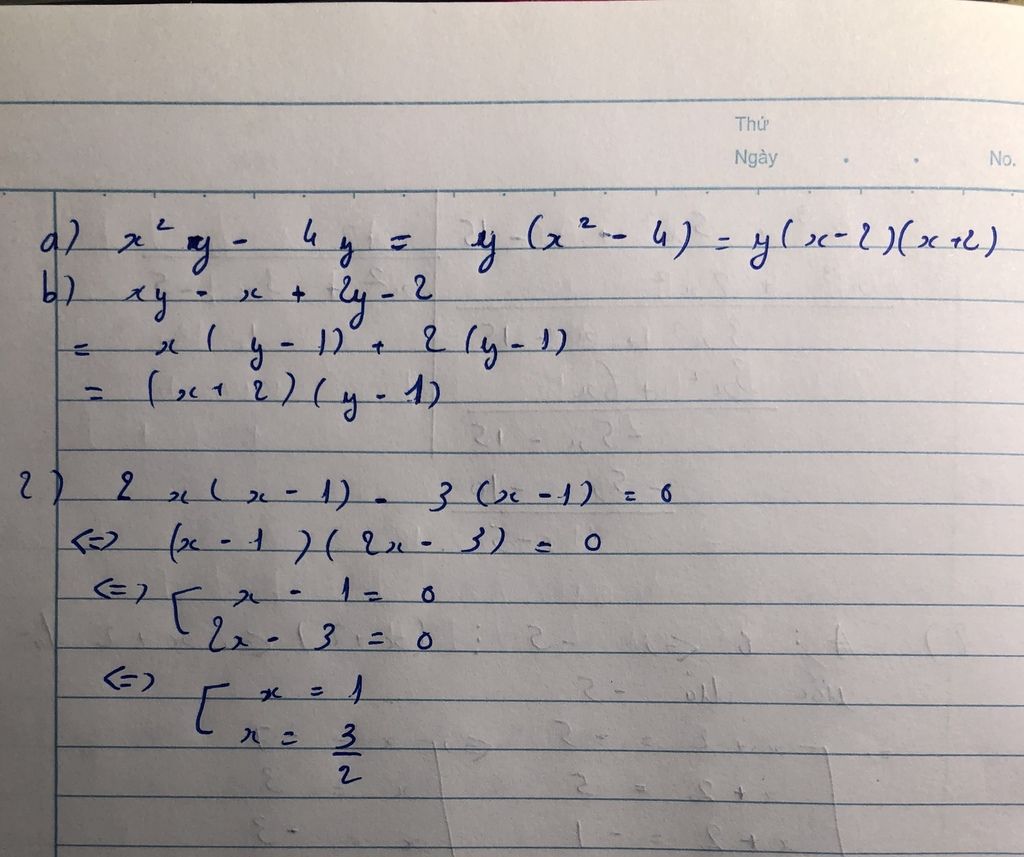 Thứ
Ngày . . No.
a) x² y - 4y = y (x² - 4) = y(x-2)(x+2)
b) xy - x + 2y - 2
= x( y - 1) + 2 (y - 1)
= (x + 2) (y - 1)
2) 2x( x - 1) - 3 (x - 1) = 0
<=> (x - 1 ) ( 2x - 3) = 0
<=> [ x - 1 = 0
2x - 3 = 0
<=> [ x = 1
x = 3/2